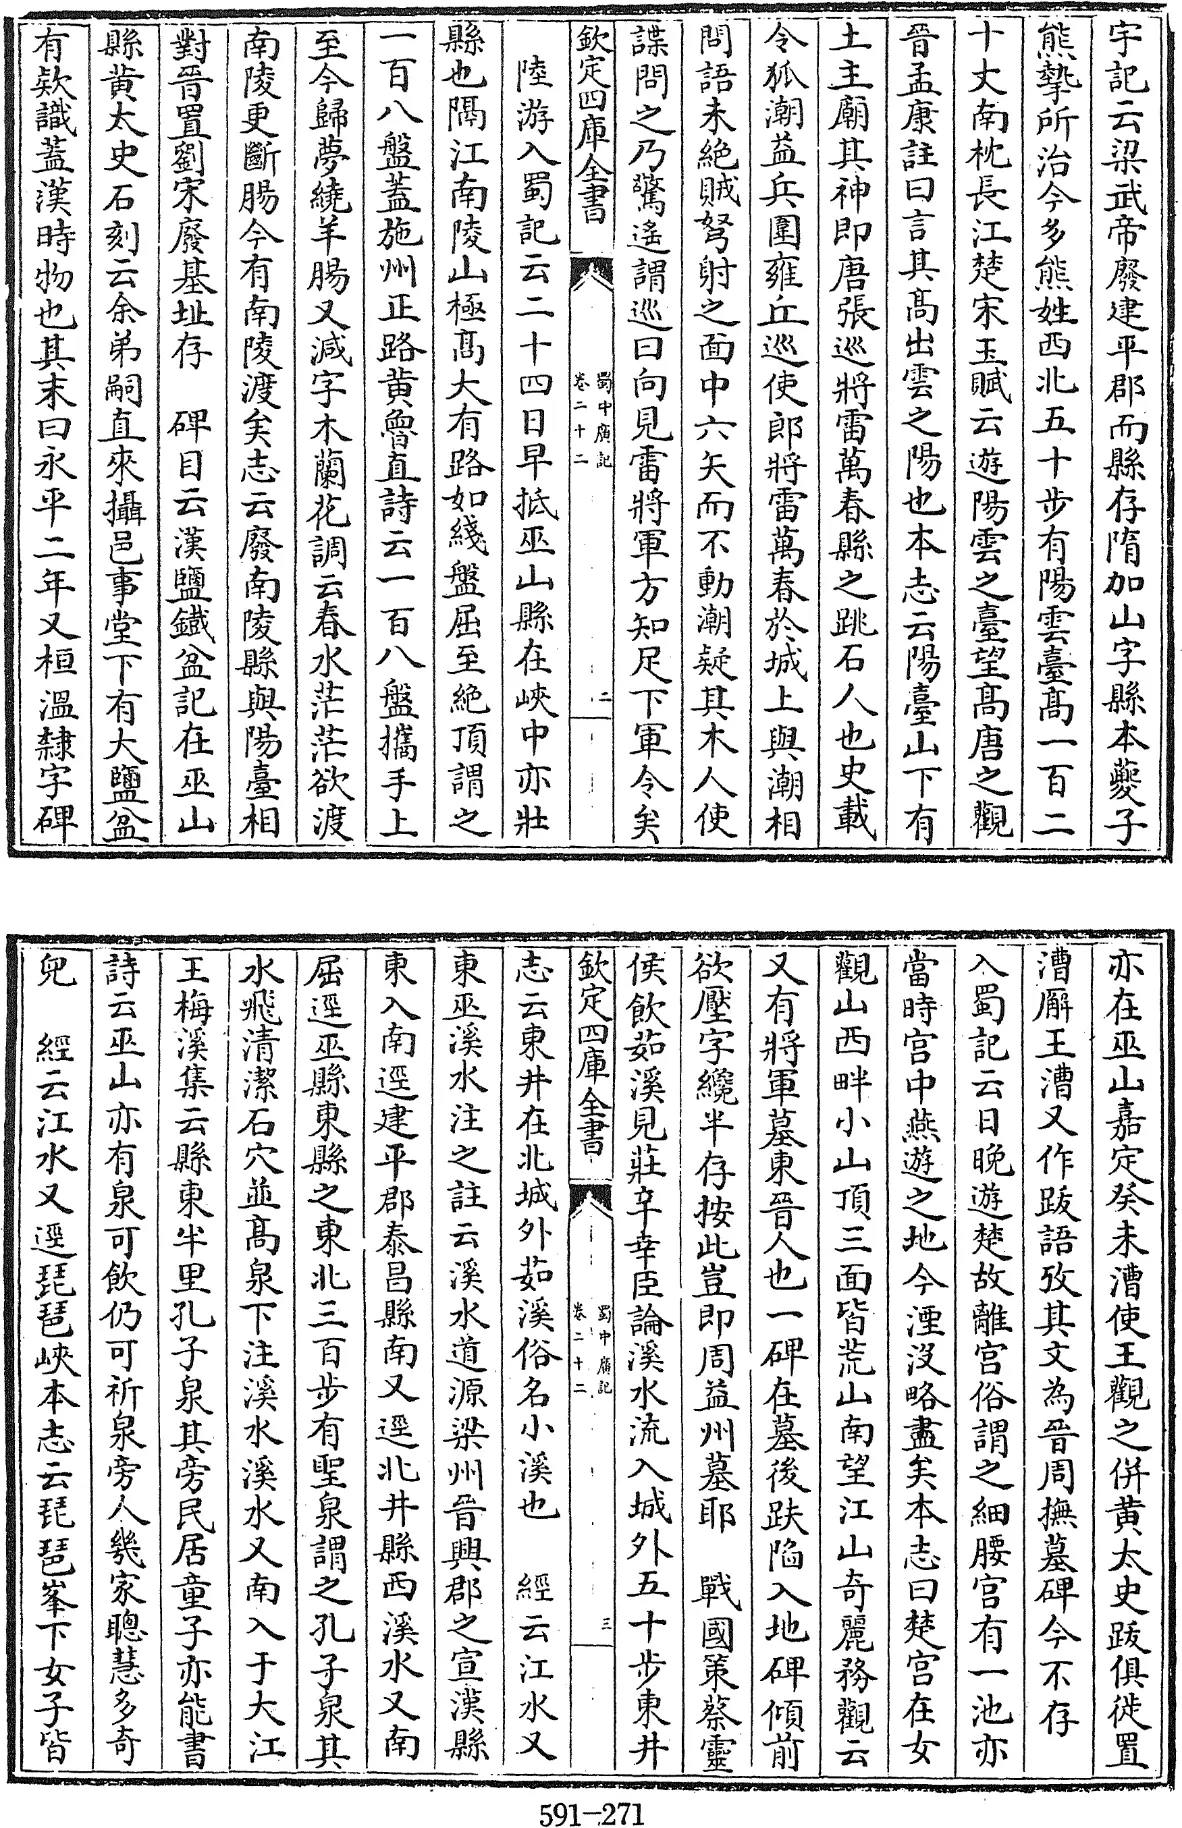 宇記云梁武帝廢建平郡而縣存隋加山字縣本夔子
熊摯所治今多熊姓西北五十步有陽雲臺高一百二
十丈南枕長江楚宋玉賦云遊陽雲之臺望高唐之觀
晉孟康註曰言其高出雲之陽也本志云陽臺山下有
土主廟其神即唐張巡將雷萬春縣之跳石人也史載
令狐潮益兵圍雍丘巡使郎將雷萬春於城上與潮相
問語未絶賊弩射之面中六矢而不動潮疑其木人使
諜問之乃驚遙謂巡曰向見雷將軍方知足下軍令矣
欽定四庫全書
蜀中廣記
卷二十二
二
陸游入蜀記云二十四日早抵巫山縣在峽中亦壯
縣也隔江南陵山極高大有路如綫盤屈至絶頂謂之
一百八盤蓋施州正路黄魯直詩云一百八盤攜手上
至今歸夢繞羊腸又減字木蘭花調云春水茫茫欲渡
南陵更斷腸今有南陵渡矣志云廢南陵縣與陽臺相
對晉置劉宋廢基址存　碑目云漢鹽鐵盆記在巫山
縣黄太史石刻云余弟嗣直來攝邑事堂下有大鹽盆
有欵識蓋漢時物也其末曰永平二年又桓溫隸字碑
亦在巫山嘉定癸未漕使王觀之併黄太史跋俱徙置
漕廨王漕又作跋語攷其文為晉周撫墓碑今不存
入蜀記云日晚遊楚故離宮俗謂之細腰宮有一池亦
當時宮中燕遊之地今湮没略盡矣本志曰楚宮在女
觀山西畔小山頂三面皆荒山南望江山奇麗務觀云
又有將軍墓東晉人也一碑在墓後趺陷入地碑傾前
欲壓字纔半存按此豈即周益州墓耶　戰國策蔡靈
侯飲茹溪見莊辛幸臣論溪水流入城外五十步東井
欽定四庫全書
蜀中廣記
卷二十二
三
志云東井在北城外茹溪俗名小溪也　經云江水又
東巫溪水注之註云溪水道源梁州晉興郡之宣漢縣
東入南逕建平郡泰昌縣南又逕北井縣西溪水又南
屈逕巫縣東縣之東北三百步有聖泉謂之孔子泉其
水飛清潔石穴並高泉下注溪水溪水又南入于大江
王梅溪集云縣東半里孔子泉其旁民居童子亦能書
詩云巫山亦有泉可飲仍可祈泉旁人幾家聰慧多奇
兒　經云江水又逕琵琶峽本志云琵琶峯下女子皆
591-271